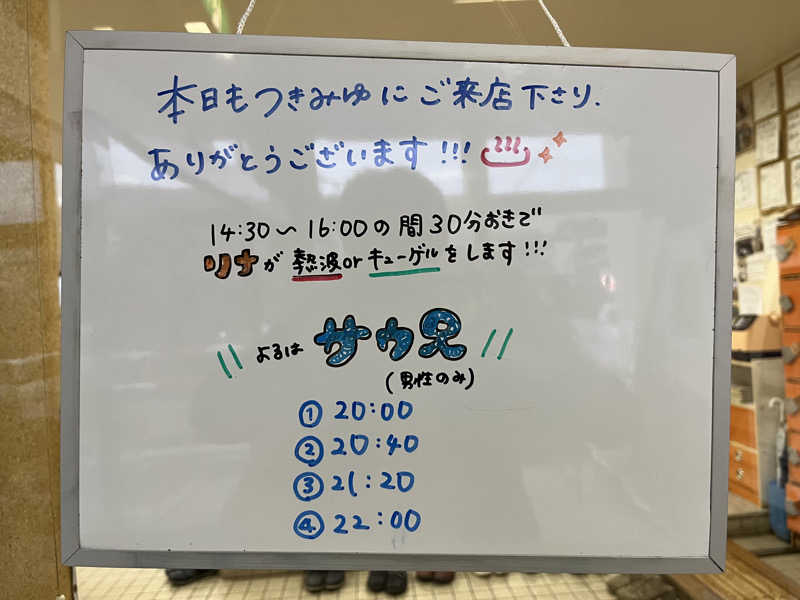 本日もつきみゆにご来店下さり、
ありがとうございます!!!
14:30〜16:00の間30分おきで
リナが熱波orキューゲルをします!!!
よるは サウ兄
(男性のみ)
① 20:00
② 20:40
③ 21:20
④ 22:00